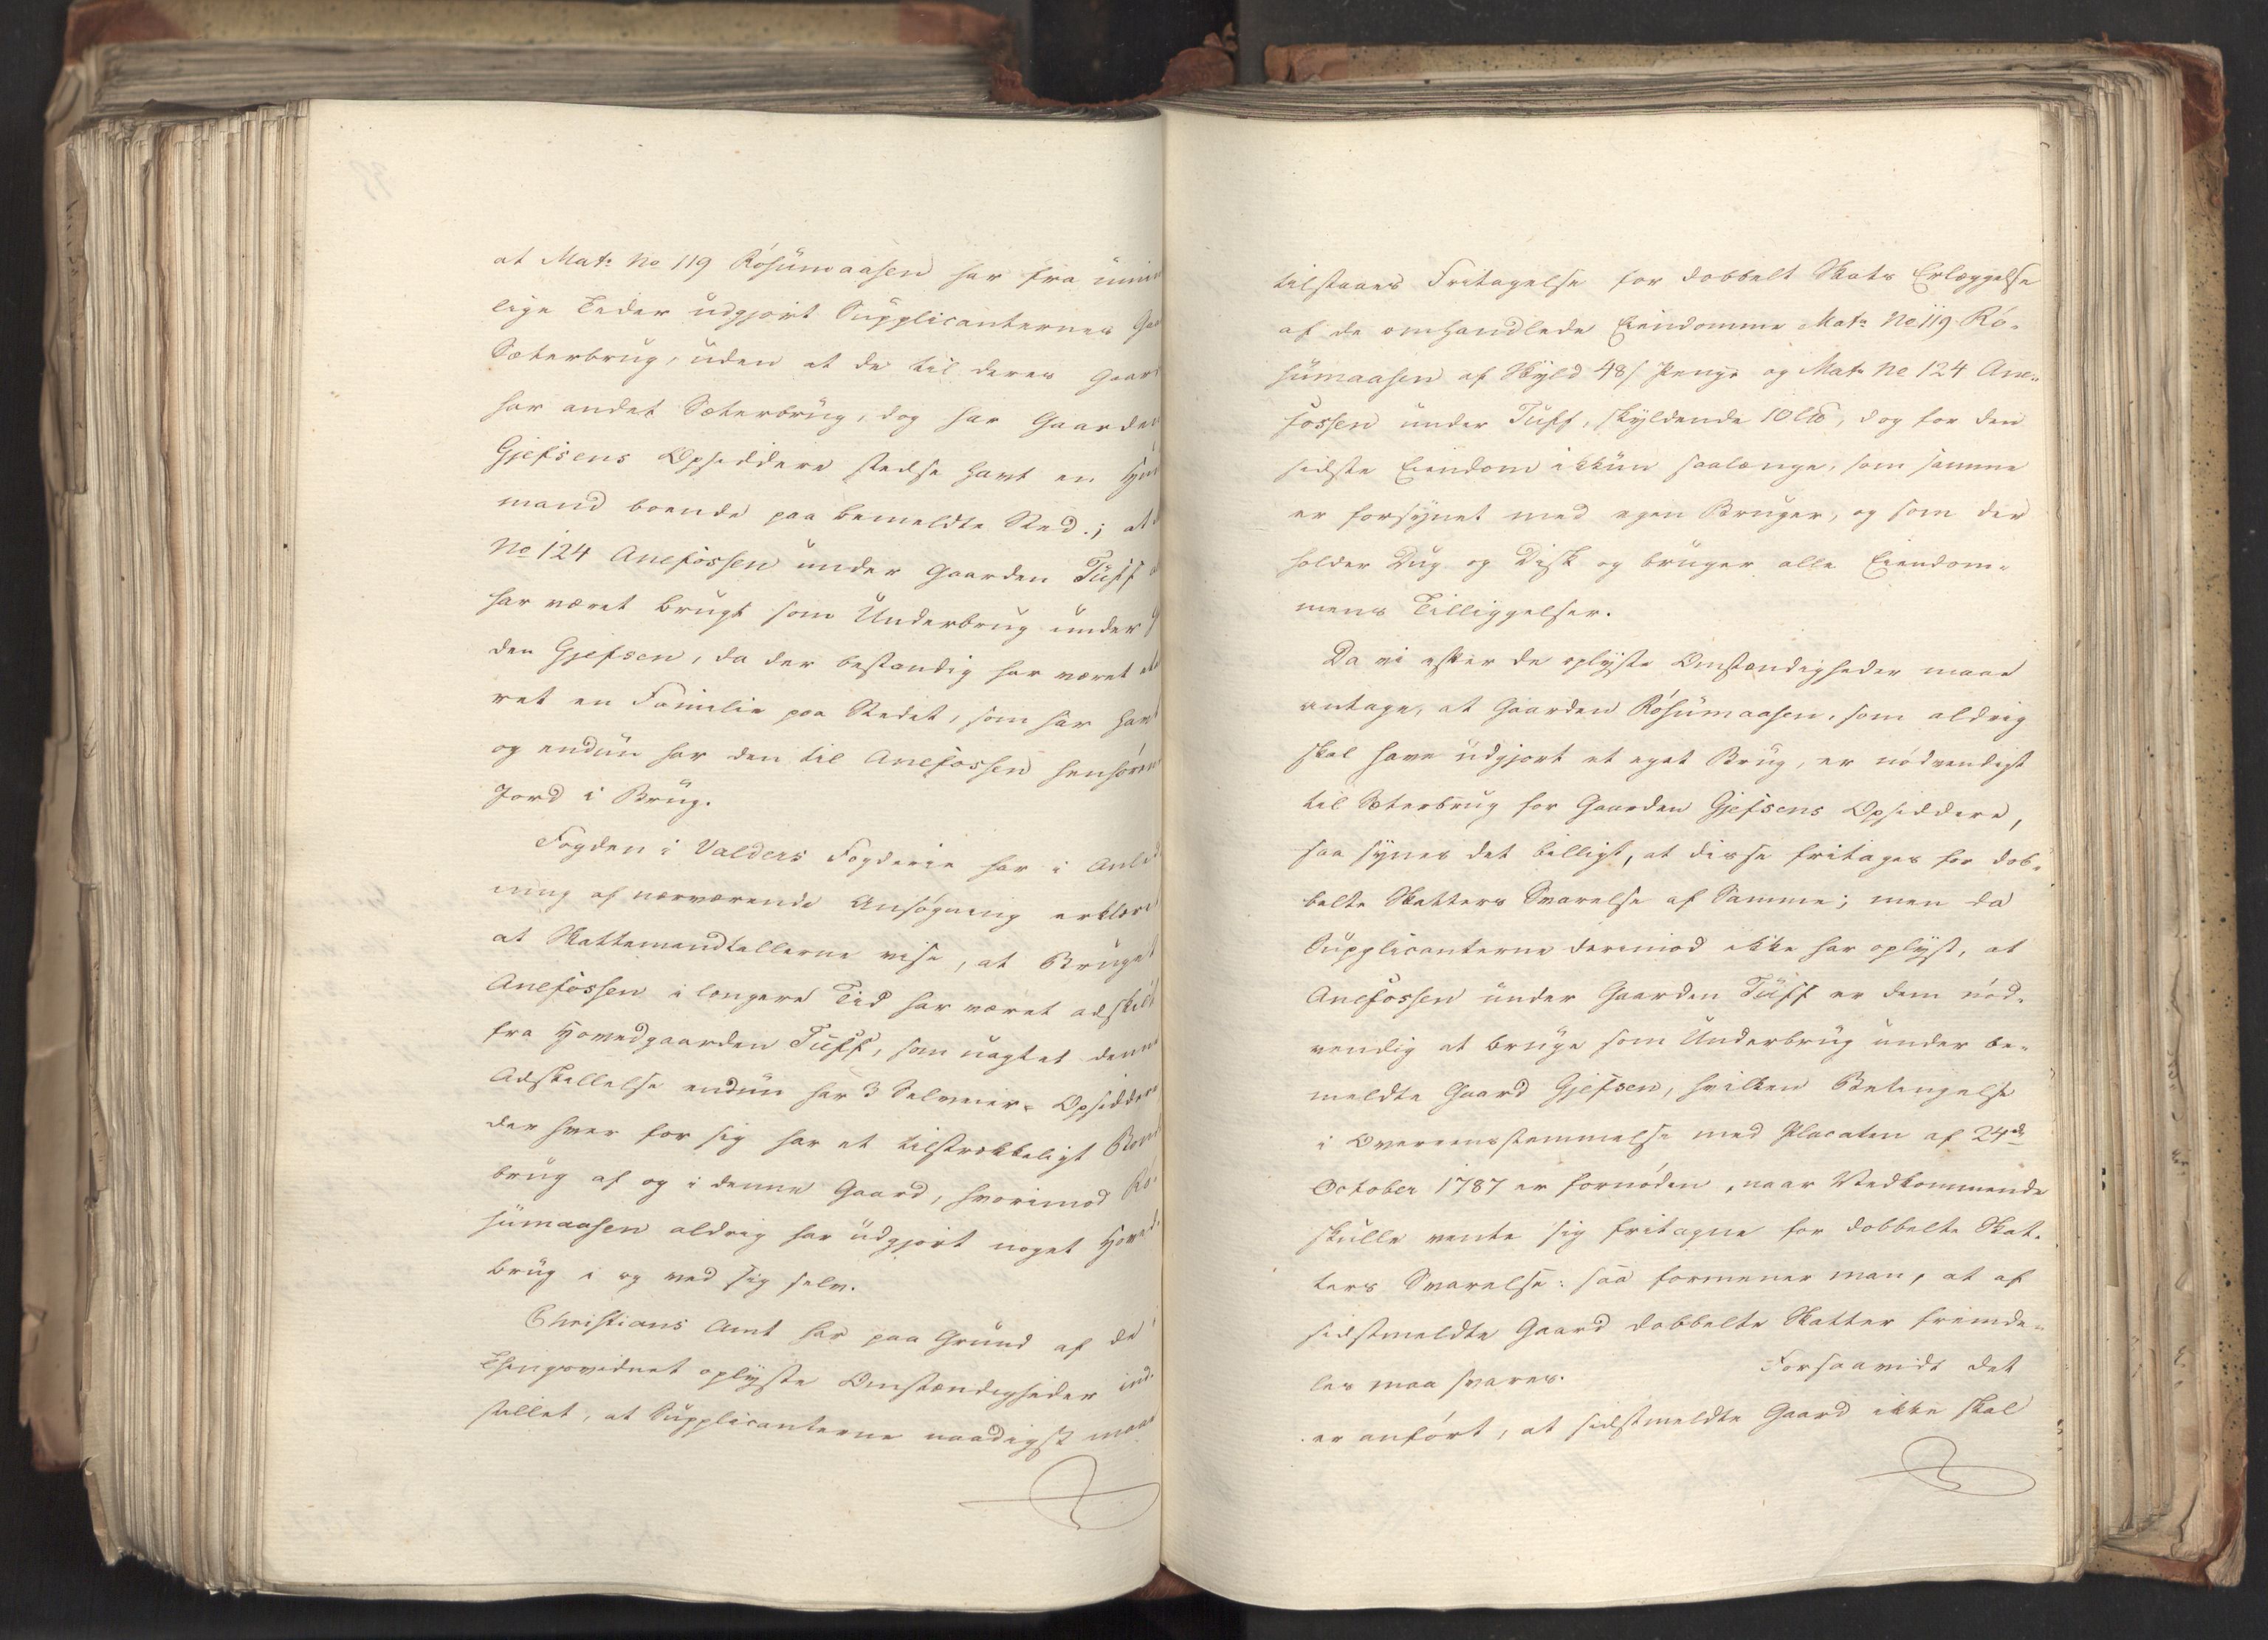 at Matr No 119 Rösümaasen har fra umin
lige Tider udgjort Supplicanternes
Sæterbrug, uden at de til deres Gaard
har andet Sæterbrug, dog har Gaarden
Gjefsens Opsiddere stedse havt en Huus
mand boende paa bemeldte Sted; at
No 124 Anefossen under Gaarden Tuff
har været brugt som Underbrug under
den Gjefsen, da der bestandig har været
ret en Familie paa Stedet, som har havt
og endnu har den til Anefossen henhören
Jord i Brug.
Fogden i Valders Fogderie har i Anled
ning af nærværende Ansögning erklæret
at Skattemandtallerne vise, at Bruget
Anefossen i længere Tid har været adskilt
fra Hovedgaarden Tuff, som uagtet denne
Adskillelse endnu har 3 Selveier-Opsiddere
der hver for sig har et tilstrækkeligt Bonde
brug af og i denne Gaard, hvorimod Rö-
sümaasen aldrig har udgjort noget Hoved-
brug i og ved sig selv.
Christians Amt har paa Grund af de
Thingsvidnet oplyste Omstændigheder ind-
stillet, at Supplicanterne naadigst maae
tilstaaes Fritagelse for dobbelt Skats Erlæggelse
af de omhandlede Eiendomme Matr No 119 Rö-
sümaasen af Skyld 48 s Penge og Matr No 124 Ane-
fossen under Tuff, skyldende 10 lb, dog for den
sidste Eiendom ikkun saalænge, som samme
er forsynet med egen Bruger, og som der
holder Dug og Disk og bruger alle Eiendom-
mens Tilliggelser.
Da vi efter de oplyste Omstændigheder maae
antage, at Gaarden Rösümaasen, som aldrig
skal have udgjort et eget Brug, er nödvendigt
til Sæterbrug for Gaarden Gjefsens Opsiddere,
saa synes det billigt, at disse fritages for dob-
belte Skatters Svarelse af Samme; men da
Supplicanterne derimod ikke har oplyst, at
Anefossen under Gaarden Tuff er dem nöd-
vendig at bruge som Underbrug under be-
meldte Gaard Gjefsen, hvilken Betingelse
i Overeensstemmelse med Placaten af 24de
October 1787 er fornöden, naar Vedkommende
skulle vente sig fritagne for dobbelte Skat-
ters Svarelse: saa formener man, at af
sidstmeldte Gaard dobbelte Skatter fremde-
les maa svares. Forsaavidt det
er anfört, at sidstmeldte Gaard ikke skal